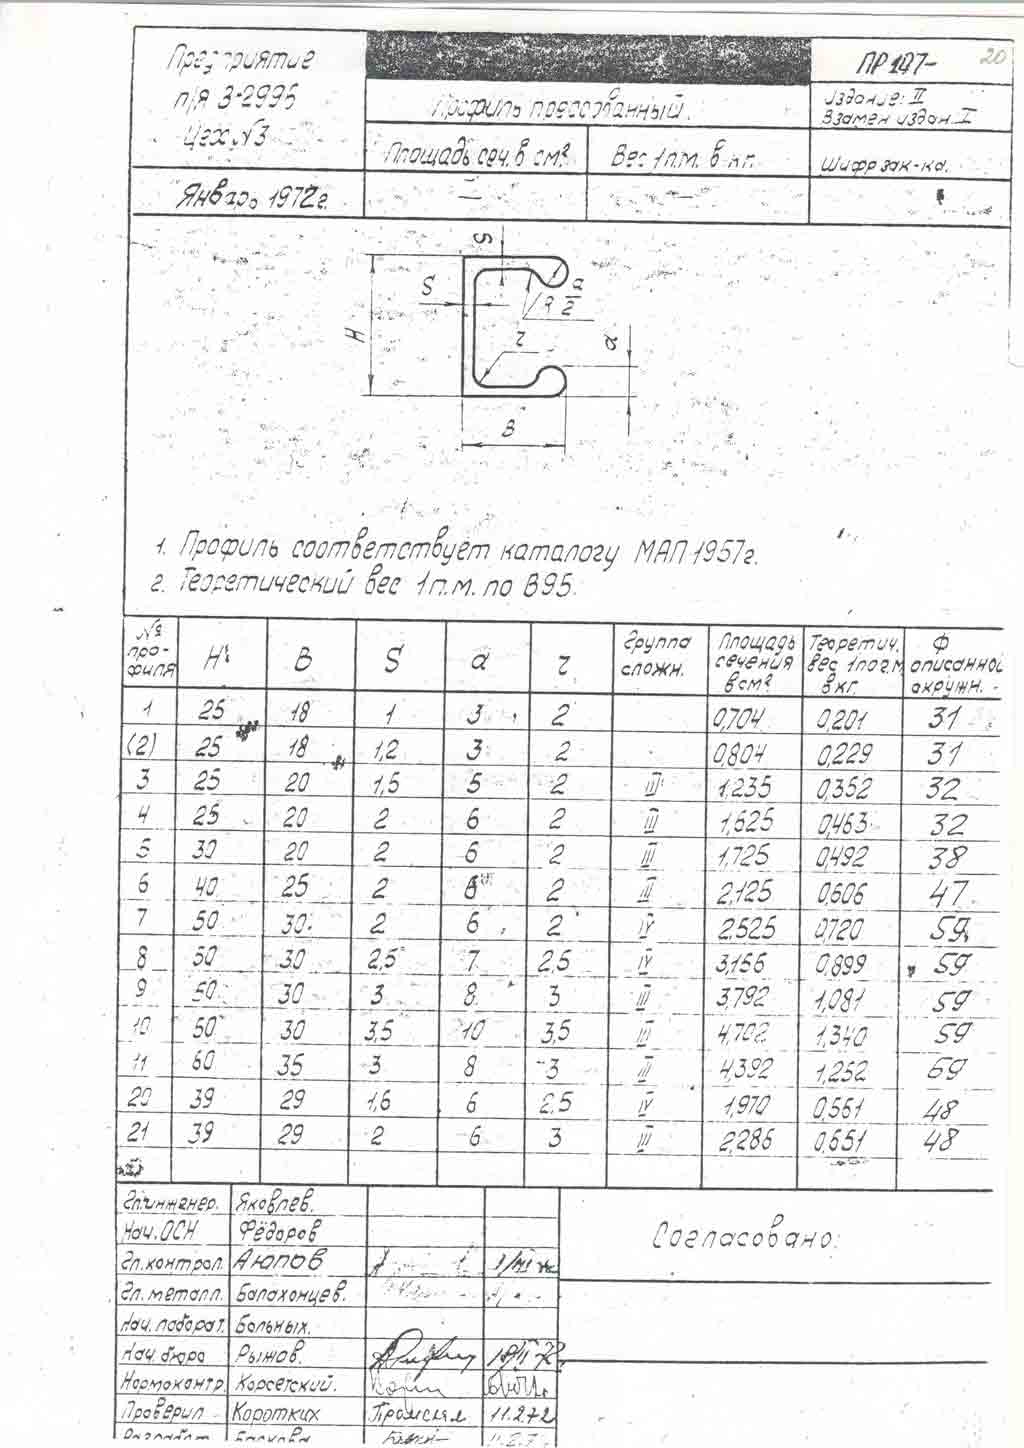 Предприятие
п/я З-2995
Цех №3
Январь 1972г.
Профиль прессованный.
Площадь сеч. в см²
Вес 1п.м. в кг.
—
—
ПР 147-
20
Издание: II
Взамен издан. I
Шифр зак-ка.
S
S
H
R a/2
a
r
B
1. Профиль соответствует каталогу МАП 1957г.
2. Теоретический вес 1п.м. по В95.
№ профиля H B S a r Группа сложн. Площадь сечения в см² Теоретич. вес 1пог.м. в кг. Ф описанной окружн.
1 25 18 1 3 2 0,704 0,201 31
(2) 25 18 1,2 3 2 0,804 0,229 31
3 25 20 1,5 5 2 III 1,235 0,352 32
4 25 20 2 6 2 III 1,625 0,463 32
5 30 20 2 6 2 III 1,725 0,492 38
6 40 25 2 6 2 III 2,125 0,606 47
7 50 30 2 6 2 IV 2,525 0,720 59
8 50 30 2,5 7 2,5 IV 3,156 0,899 59
9 50 30 3 8 3 III 3,792 1,081 59
10 50 30 3,5 10 3,5 III 4,702 1,340 59
11 60 35 3 8 3 III 4,392 1,252 69
20 39 29 1,6 6 2,5 IV 1,970 0,561 48
21 39 29 2 6 3 III 2,286 0,651 48
Гл.инженер. Яковлев.
Нач. ОСН Фёдоров
Гл.контрол. Аюпов
Гл. металл. Балахонцев.
Нач. лаборат. Больных.
Нач. бюро Рыжов.
Нормоконтр. Корсетский.
Проверил Коротких 11.2.72
Разработ. Баскова
Согласовано: